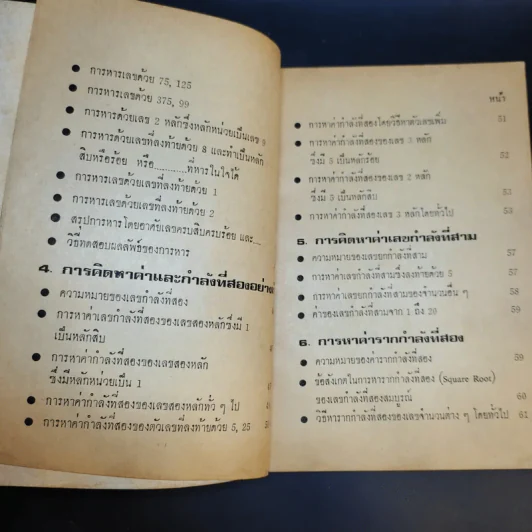 ● การหารเลขด้วย 75, 125
● การหารเลขด้วย 375, 99
● การหารด้วยเลข 2 หลักซึ่งหลักหน่วยเป็นเลข 9
● การหารด้วยเลขที่ลงท้ายด้วย 8 และทำเป็นหลัก
สิบหรือร้อย หรือ............ที่หารในใจได้
● การหารเลขด้วยเลขที่ลงท้ายด้วย 1
● การหารเลขด้วยเลขที่ลงท้ายด้วย 2
● สรุปการหารโดยอาศัยเลขครบสิบครบร้อย และ...
● วิธีทดสอบผลลัพธ์ของการหาร
4. การคิดหาค่าและกำลังที่สองอย่าง
● ความหมายของเลขกำลังที่สอง
● การหาค่าเลขกำลังที่สองของเลขสองหลักซึ่งมี 1
เป็นหลักสิบ
● การหาค่ากำลังที่สองของเลขสองหลัก
ซึ่งมีหลักหน่วยเป็น 1
● การหาค่ากำลังที่สองของเลขสองหลักทั่ว ๆ ไป
● การหาค่ากำลังที่สองของตัวเลขที่ลงท้ายด้วย 5, 25
หน้า
● การหาค่ากำลังที่สองโดยวิธีหาตัวเลขเพิ่ม 51
● การหาค่ากำลังที่สองของเลข 3 หลัก
ซึ่งมี 5 เป็นหลักร้อย 52
● การหาค่ากำลังที่สองของเลข 2 หลัก
ซึ่งมี 5 เป็นหลักสิบ 53
● การหาค่ากำลังที่สองของเลข 3 หลักโดยทั่วไป 53
5. การคิดหาค่าเลขกำลังที่สาม
● ความหมายของเลขยกกำลังที่สาม 57
● การหาค่าเลขกำลังที่สามซึ่งลงท้ายด้วย 5 57
● การหาค่าเลขยกกำลังที่สามของจำนวนอื่น ๆ 58
● ค่าของเลขกำลังที่สามจาก 1 ถึง 20 59
6. การหาค่ารากกำลังที่สอง
● ความหมายของค่ารากกำลังที่สอง 59
● ข้อสังเกตในการหารากกำลังที่สอง (Square Root)
ของเลขกำลังที่สองสมบูรณ์ 60
● วิธีหารากกำลังที่สองของเลขจำนวนต่าง ๆ โดยทั่วไป 61